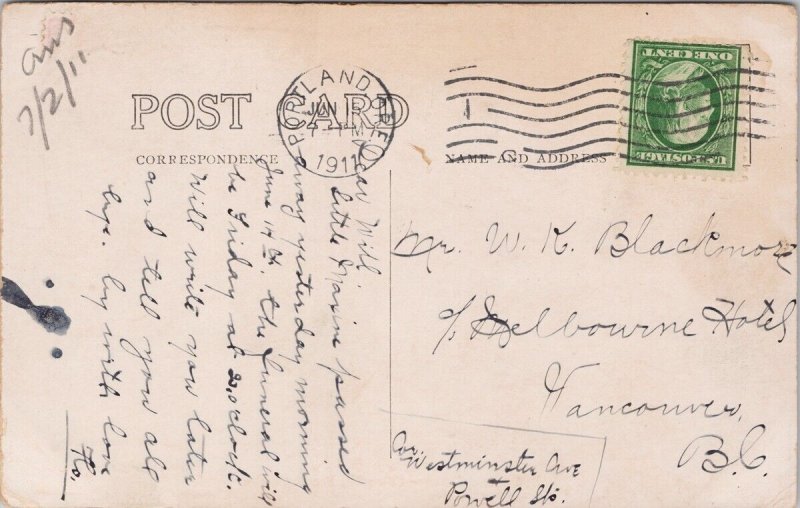 ans
7/2/11
POST CARD
CORRESPONDENCE
NAME AND ADDRESS
PORTLAND, OREG.
JUN 15
7 PM
1911
ONE CENT
U.S. POSTAGE
Dear Will
little Maxine passed
away yesterday morning
June 14th. the funeral will
be Friday at 2 oclock.
Will write you later
and tell you all
bye. by with love
Flo.
Mr. W. K. Blackmore
c/o Melbourne Hotel
Vancouver,
B.C.
Cor
Westminster Ave
Powell Sts.